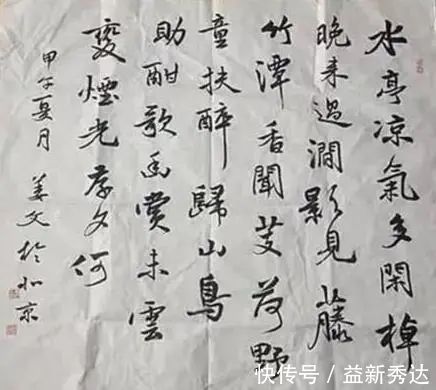 水亭涼氣多閑棹
晚来過澗影見藤
竹潭香聞芰荷野
童扶醉歸山鳥
助酣歌幽賞未雲
煙光奈夕何
甲午夏月 姜文於北京
快传号/益新秀达